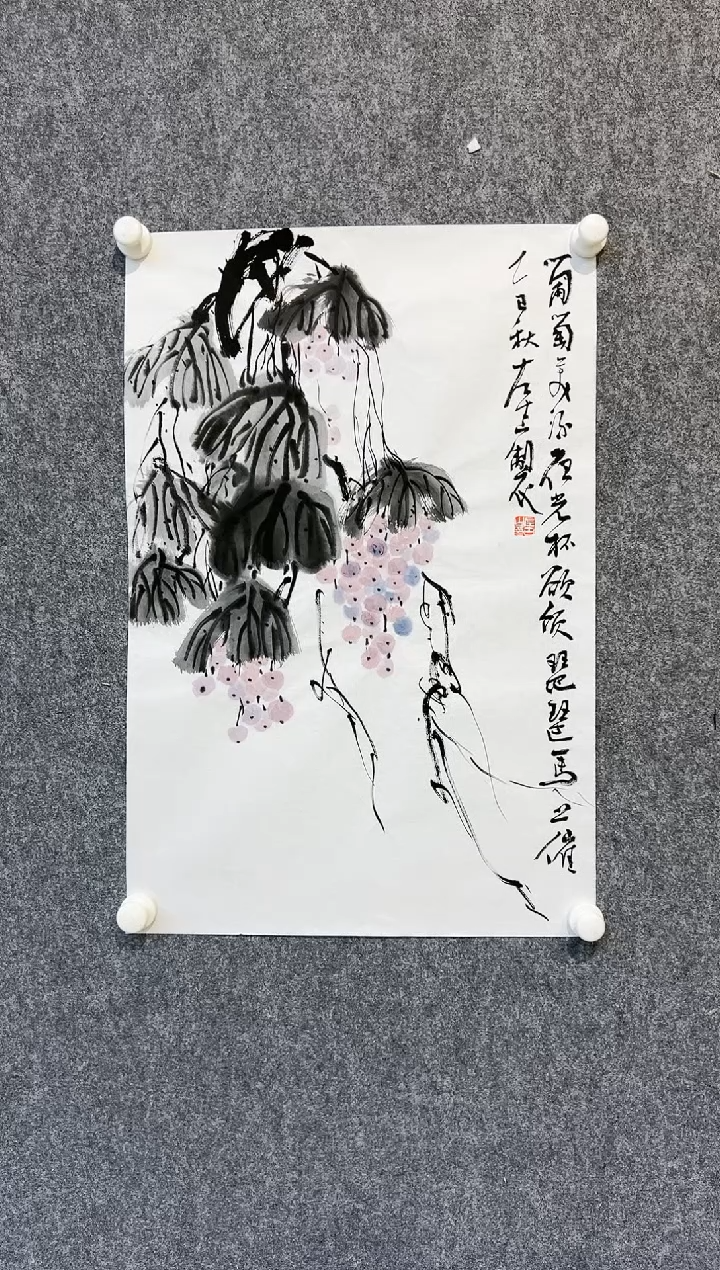 葡萄美酒夜光杯欲饮琵琶馬上催
乙巳秋 製